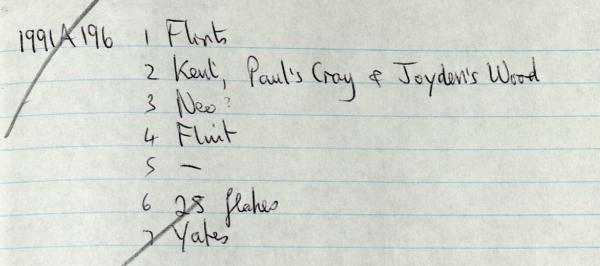 1991A196 1 Flints
2 Kent, Paul's Cray & Joyden's Wood
3 Neo?
4 Flint
5 —
6 28 flakes
7 Yates